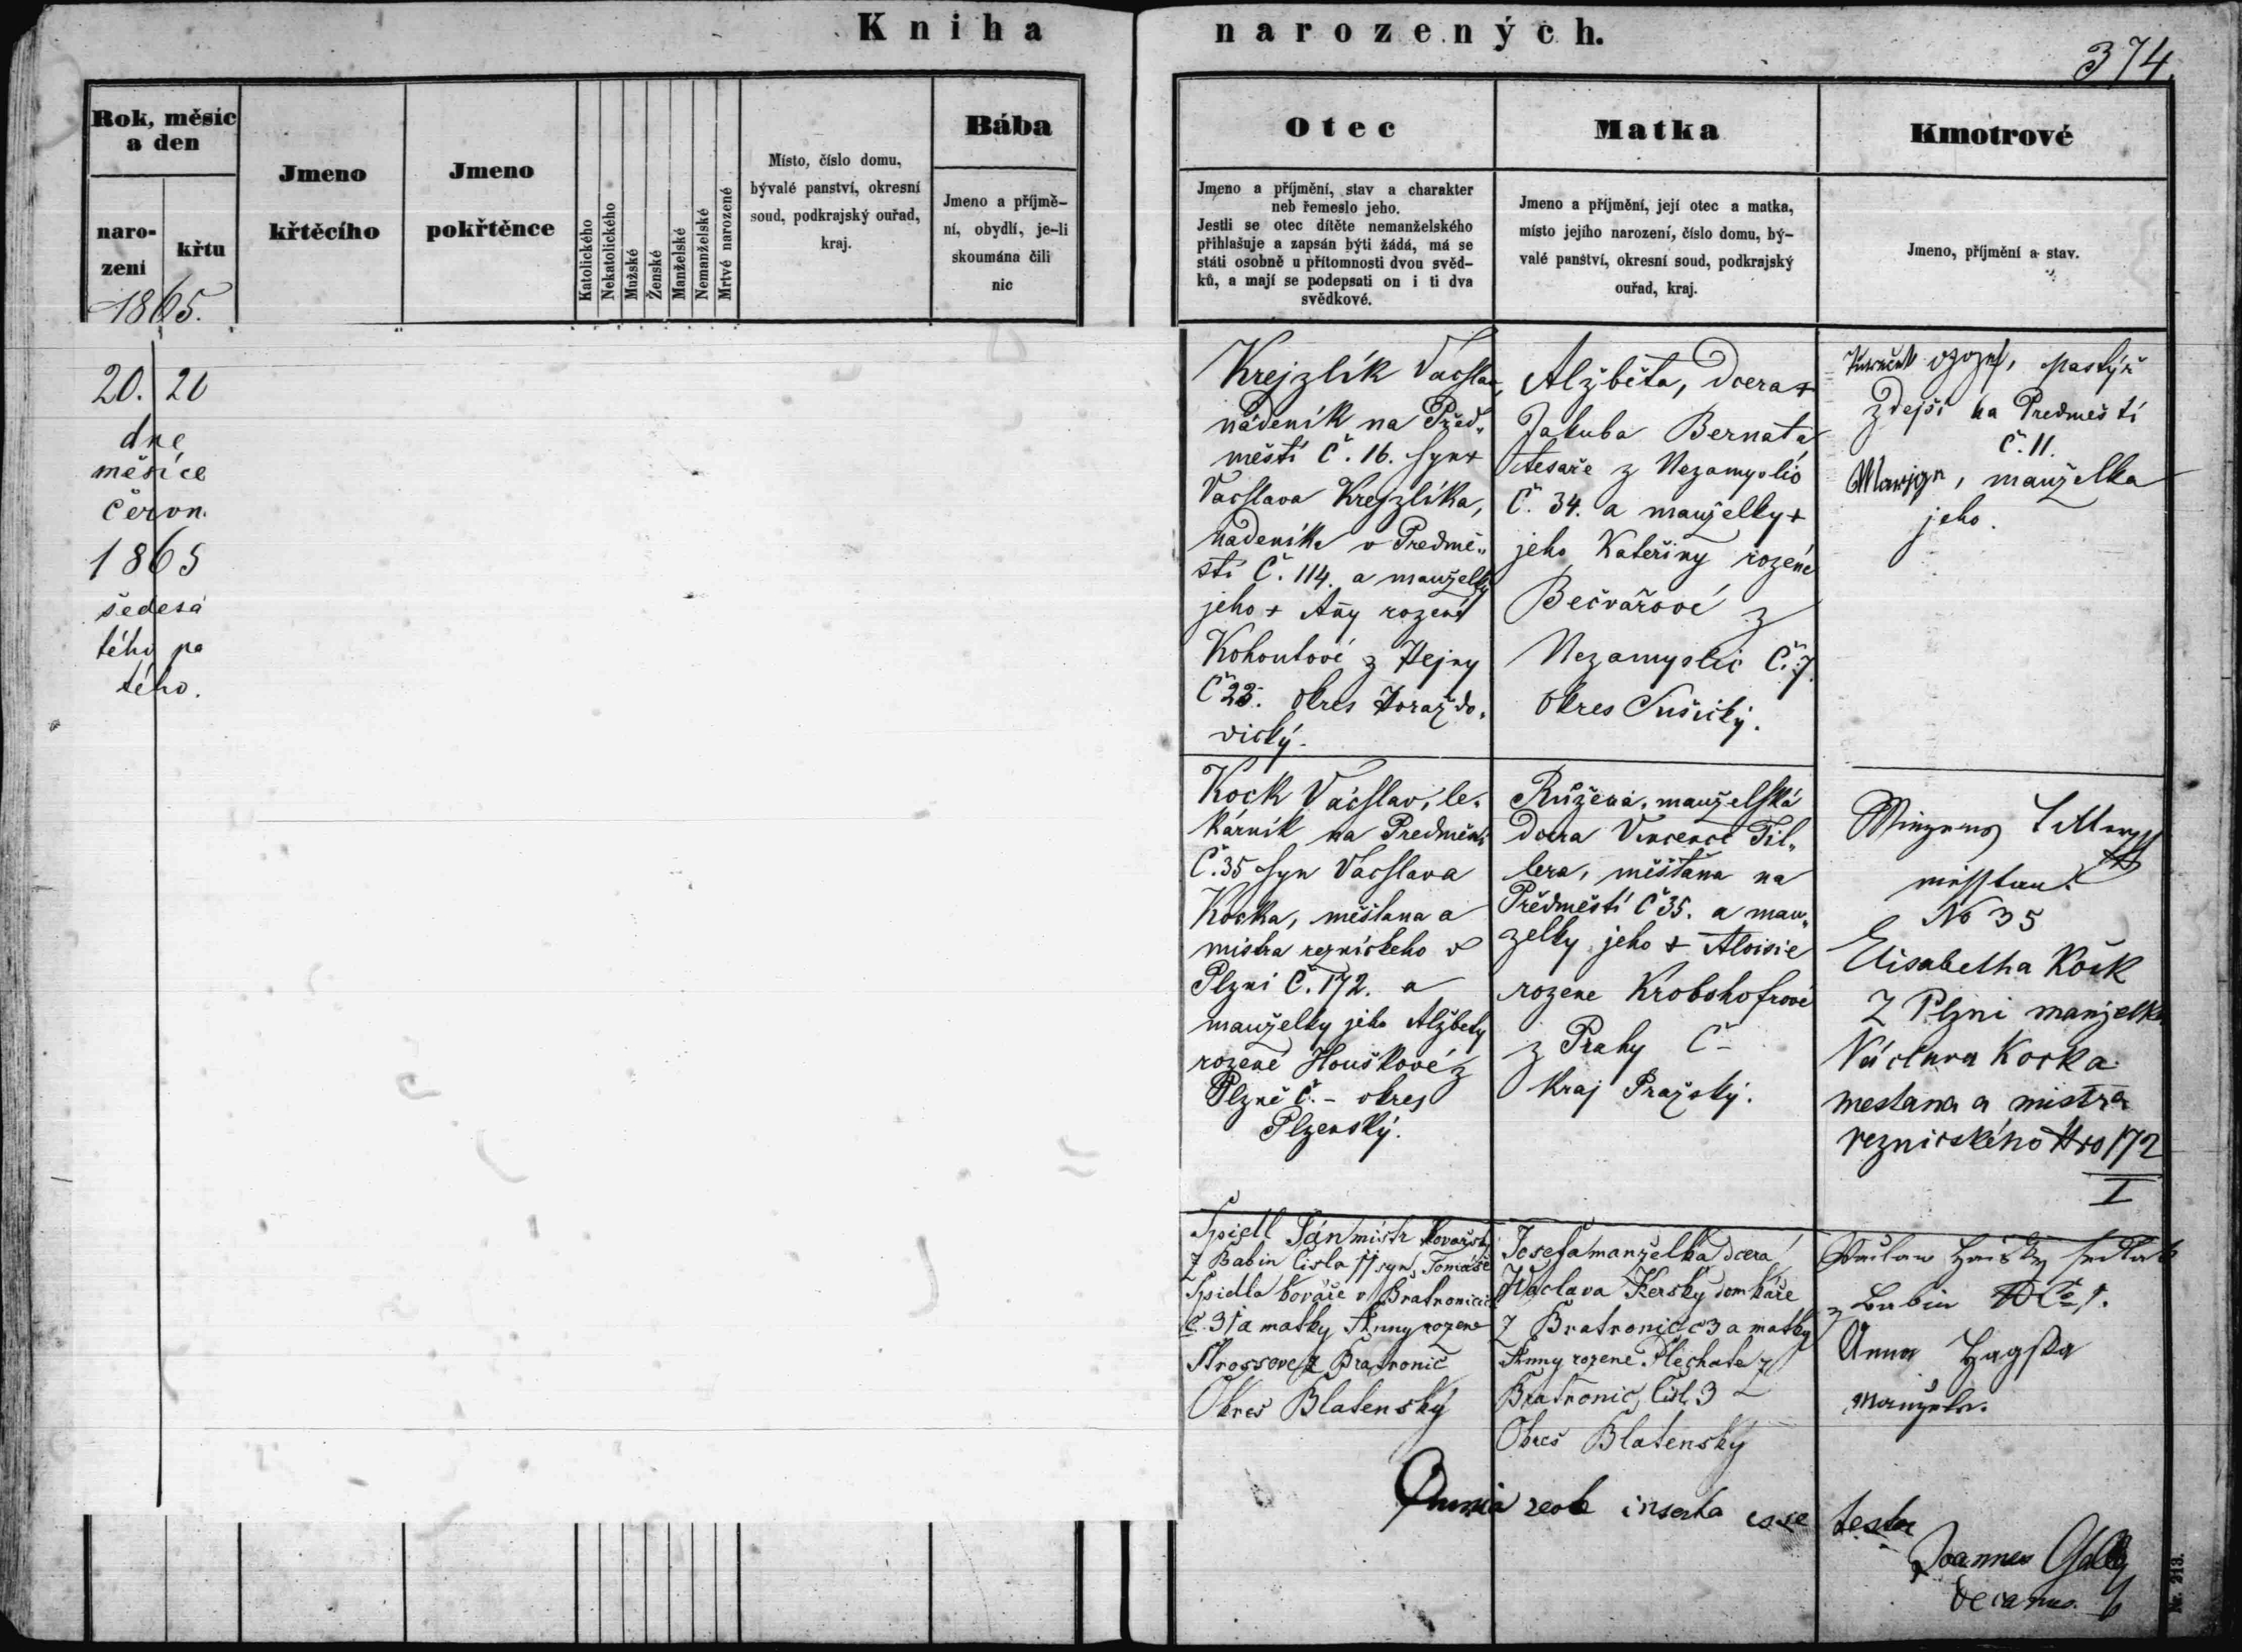 Kniha narozených.
374.
Rok, měsíc
a den
naro-
zení
křtu
1865.
Jmeno
křtěcího
Jmeno
pokřtěnce
Katolického
Nekatolického
Mužské
Ženské
Manželské
Nemanželské
Mrtvé narozené
Místo, číslo domu,
bývalé panství, okresní
soud, podkrajský ouřad,
kraj.
Bába
Jmeno a příjmě-
ní, obydlí, je-li
skoumána čili
nic
Otec
Jmeno a příjmění, stav a charakter
neb řemeslo jeho.
Jestli se otec dítěte nemanželského
přihlašuje a zapsán býti žádá, má se
státi osobně u přítomnosti dvou svěd-
ků, a mají se podepsati on i ti dva
svědkové.
Matka
Jmeno a příjmění, její otec a matka,
místo jejího narození, číslo domu, bý-
valé panství, okresní soud, podkrajský
ouřad, kraj.
Kmotrové
Jmeno, příjmění a stav.
20. 20
dne
měsíce
červn.
1865
šedesá
tého pa
tého.
Krejzlík Václav,
nádeník na Před„
městí Č. 16. syn +
Václava Krejzlíka,
nadeníka v Predmě„
stí Č. 114. a manželky
jeho + Añy rozené
Kohoutové z Hejny
Č 23. okres Horaždo„
vický.
Alžběta, dcera +
Jakuba Bernata
tesaře z Nezamyslic
Č. 34. a manželky +
jeho Kateřiny rozené
Bečvářové z
Nezamyslic Č. 7.
okres Sušický.
Jozef, pastýř
zdejší na Predmestí
č. 11.
manželka
jeho.
Kock Václav, le„
kárník na Predměstí
Č. 35 syn Václava
Kocka, měšťana a
mistra reznického v
Plzni Č. 172. a
manželky jeho Alžbety
rozené Houškové z
Plzně Č. - okres
Plzenský.
Růžena, manželská
dcera Vincence Til„
lera, měšťana na
Předměstí Č 35. a man„
zelky jeho + Aloisie
rozene Krobshofrové
z Prahy Č -
Kraj Pražský.
No 35
Elisabetha Kock
Z Plzni manjelka
Václava Kocka
mestana a mistra
reznicského Nro 172
I
Spidl Ján mistr kovařský
z Babin čisla 11 syn Tomáše
Spidla kováře v Bratronicich
č. 31 a matky Anny rozene
Strossove z Bratronic
Okres Blatenský
Josefa manželka dcera
Václava Kersky domkáře
z Bratronic č 3 a matky
Anny rozene Plechate z
Bratronic, čisl. 3
Okres Blatensky
z Babin
Anna
Omnia recte inserta esse testor
Joannes Gally
decanus.
Nr. 213.